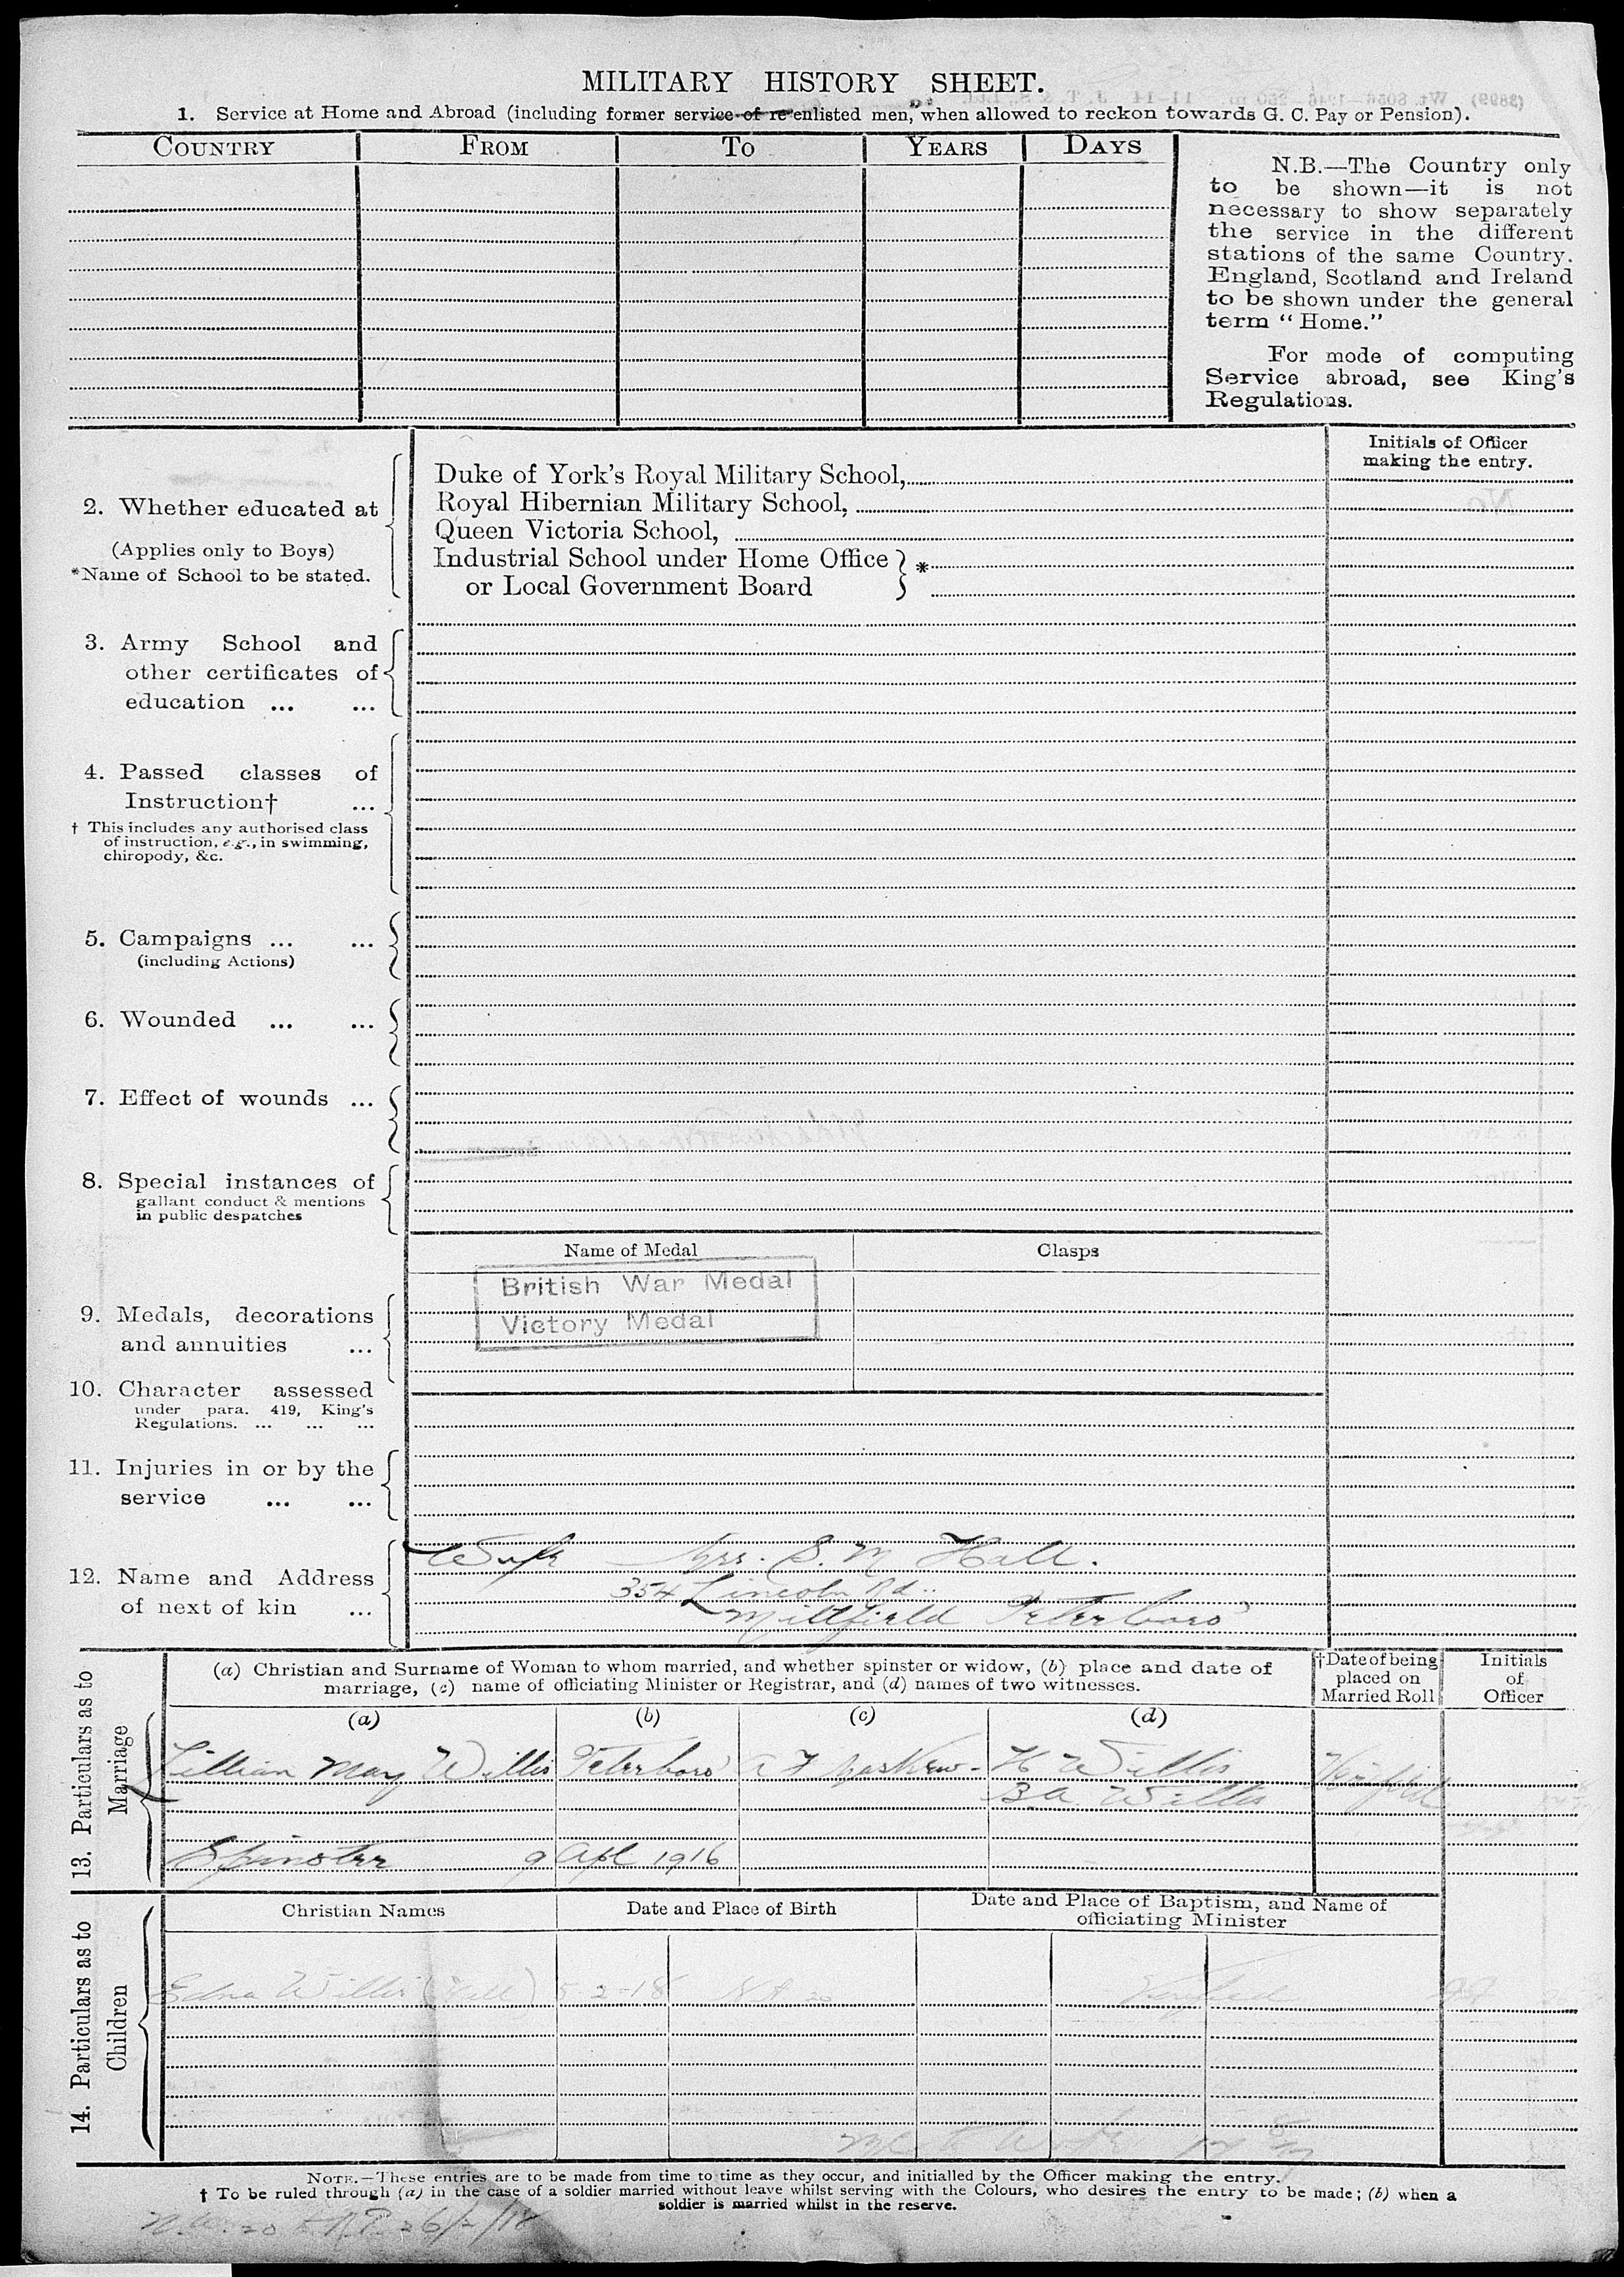 MILITARY HISTORY SHEET.
1. Service at Home and Abroad (including former service of re-enlisted men, when allowed to reckon towards G. C. Pay or Pension).
COUNTRY FROM TO YEARS DAYS
N.B.—The Country only
to be shown—it is not
necessary to show separately
the service in the different
stations of the same Country.
England, Scotland and Ireland
to be shown under the general
term "Home."
For mode of computing
Service abroad, see King's
Regulations.
Initials of Officer
making the entry.
2. Whether educated at
(Applies only to Boys)
*Name of School to be stated.
Duke of York's Royal Military School,
Royal Hibernian Military School,
Queen Victoria School,
Industrial School under Home Office } *
or Local Government Board
3. Army School and
other certificates of
education ... ...
4. Passed classes of
Instruction† ...
† This includes any authorised class
of instruction, e.g., in swimming,
chiropody, &c.
5. Campaigns ... ...
(including Actions)
6. Wounded ... ...
7. Effect of wounds ...
8. Special instances of
gallant conduct & mentions
in public despatches
Name of Medal Clasps
British War Medal
Victory Medal
9. Medals, decorations
and annuities ...
10. Character assessed
under para. 419, King's
Regulations. ... ... ...
11. Injuries in or by the
service ... ...
12. Name and Address
of next of kin ...
Wife Mrs. S. M Hall.
354 Lincoln Rd..
Millfield Peterboro'
13. Particulars as to
Marriage
(a) Christian and Surname of Woman to whom married, and whether spinster or widow, (b) place and date of
marriage, (c) name of officiating Minister or Registrar, and (d) names of two witnesses.
†Date of being
placed on
Married Roll
Initials
of
Officer
(a) (b) (c) (d)
Lillian May Willis Peterboro' A F Maskew H Willis
B A Willis
Spinster 9 Apl 1916
14. Particulars as to
Children
Christian Names Date and Place of Birth Date and Place of Baptism, and Name of
officiating Minister
Edna Willis (Hall) 5-2-18
NOTE.—These entries are to be made from time to time as they occur, and initialled by the Officer making the entry.
† To be ruled through (a) in the case of a soldier married without leave whilst serving with the Colours, who desires the entry to be made; (b) when a
soldier is married whilst in the reserve.
26/2/18